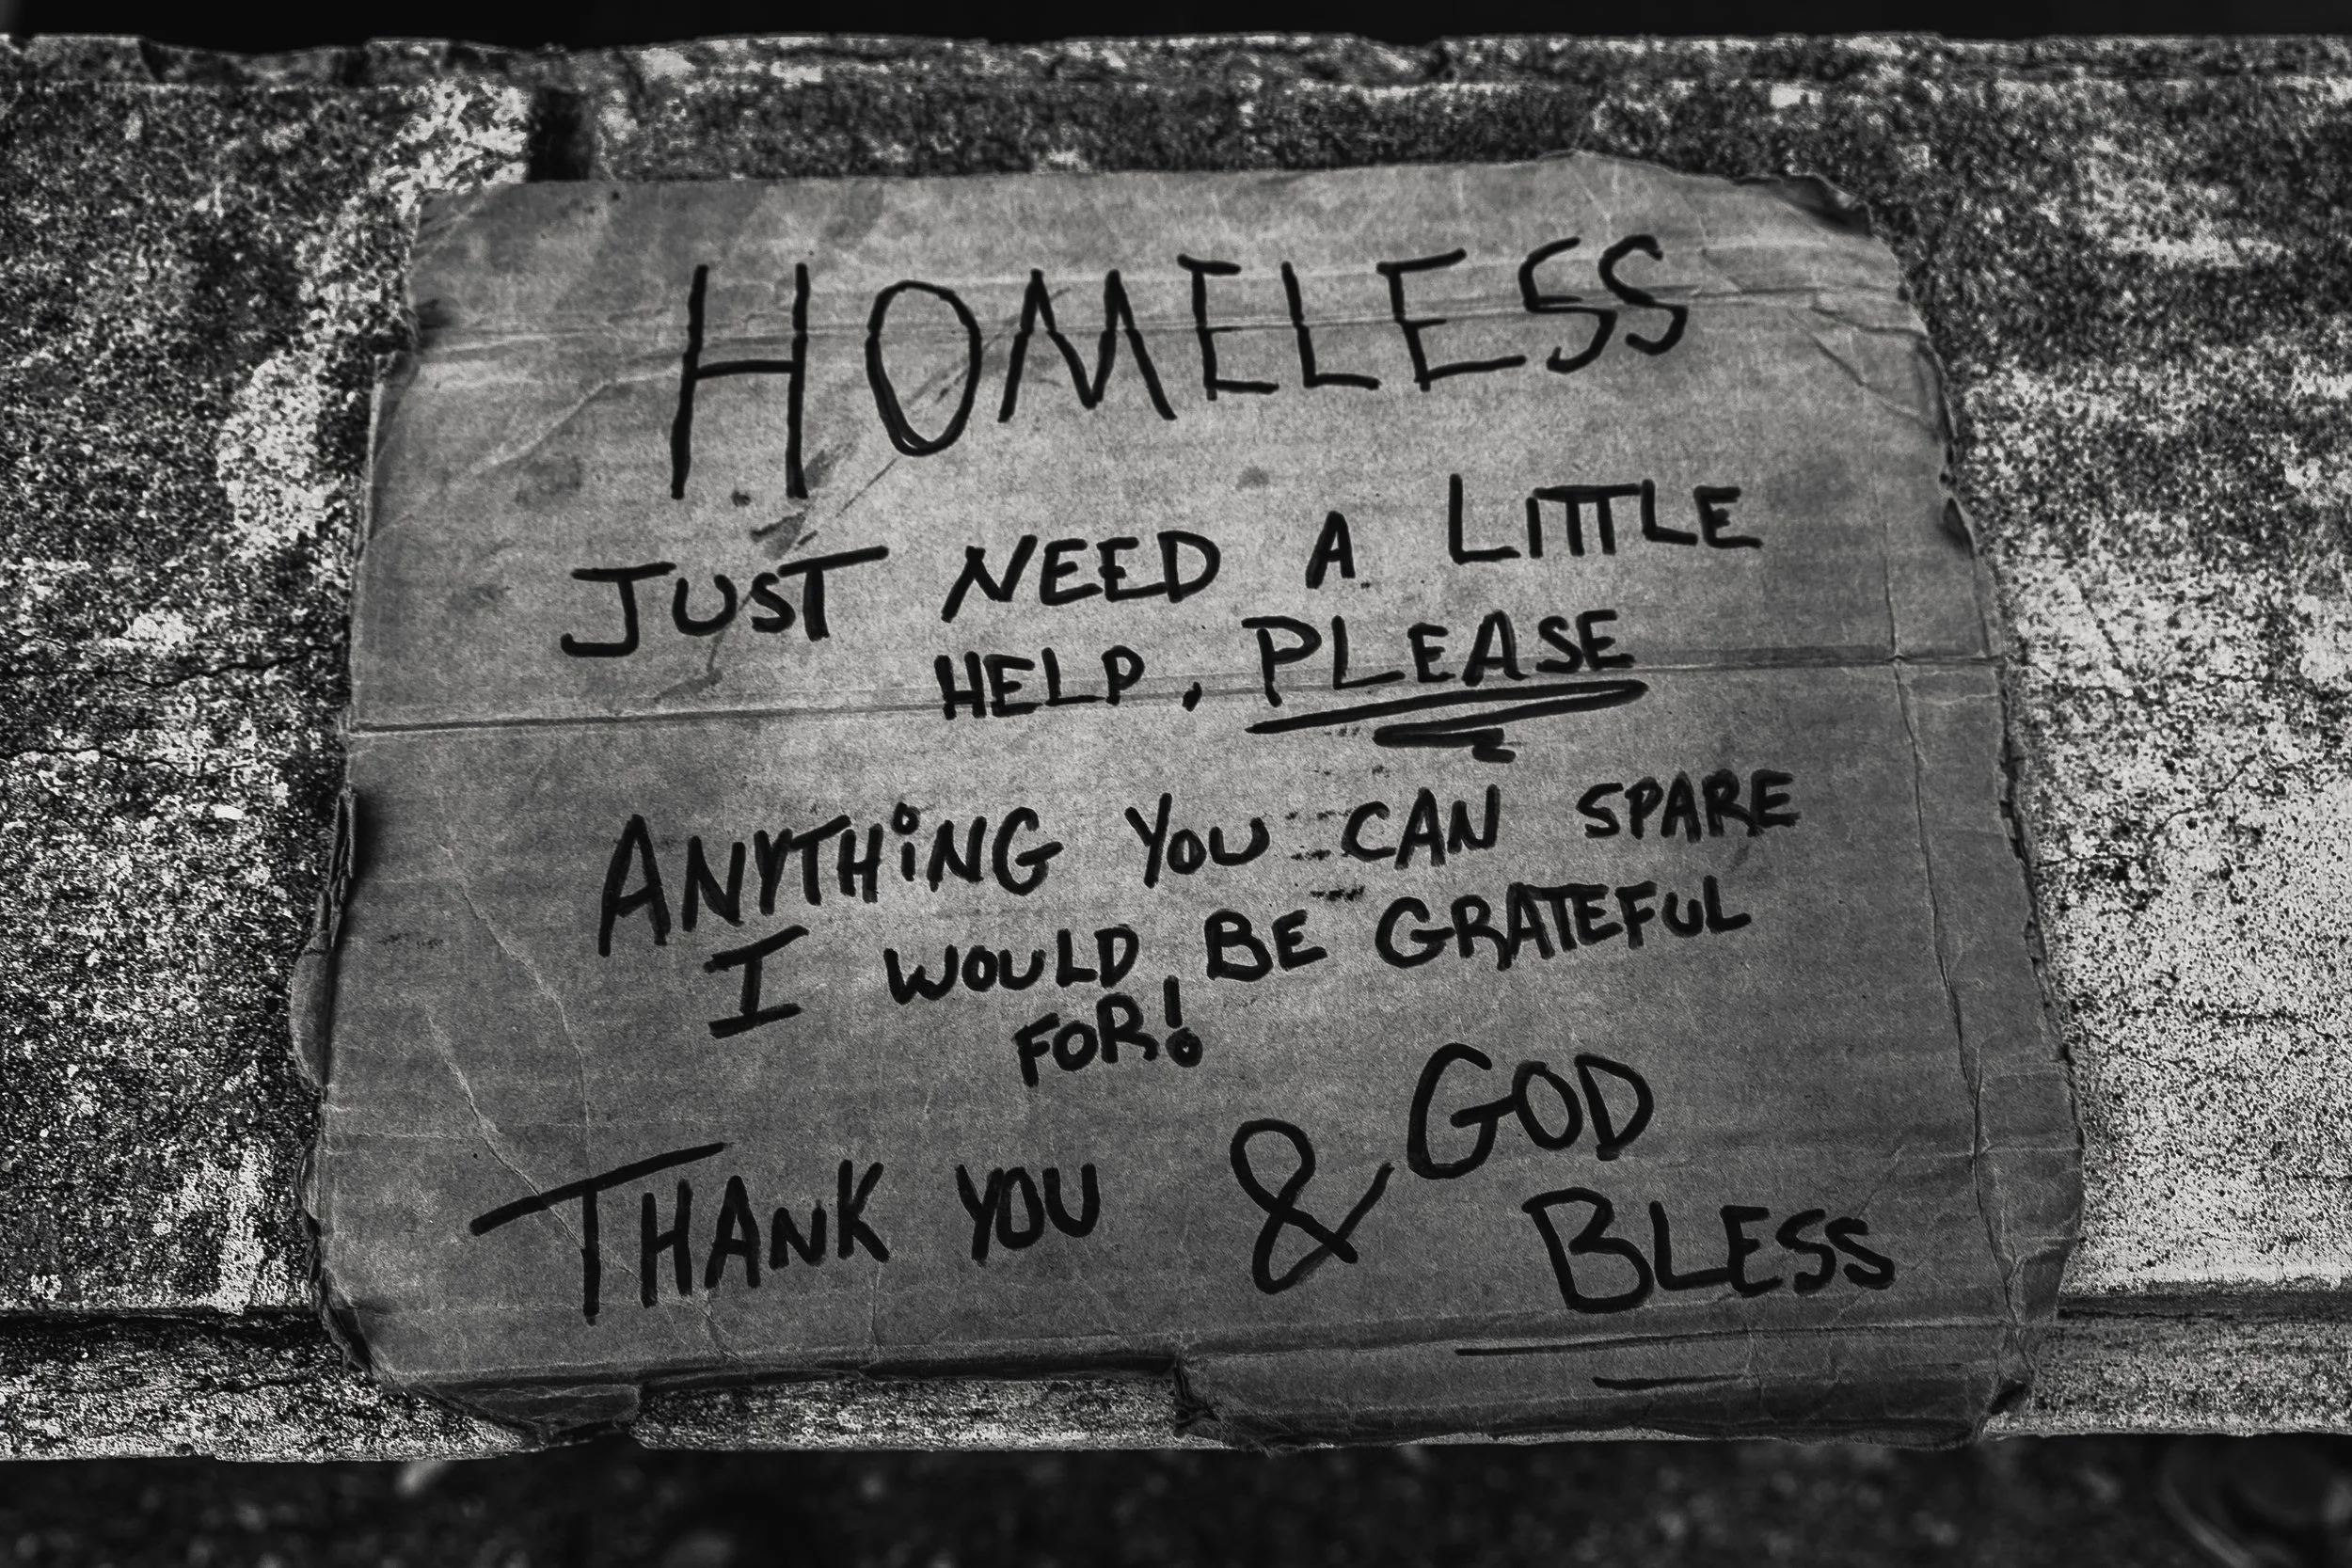 HOMELESS
JUST NEED A LITTLE
HELP, PLEASE
ANYTHING YOU CAN SPARE
I WOULD BE GRATEFUL
FOR!
THANK YOU & GOD
BLESS